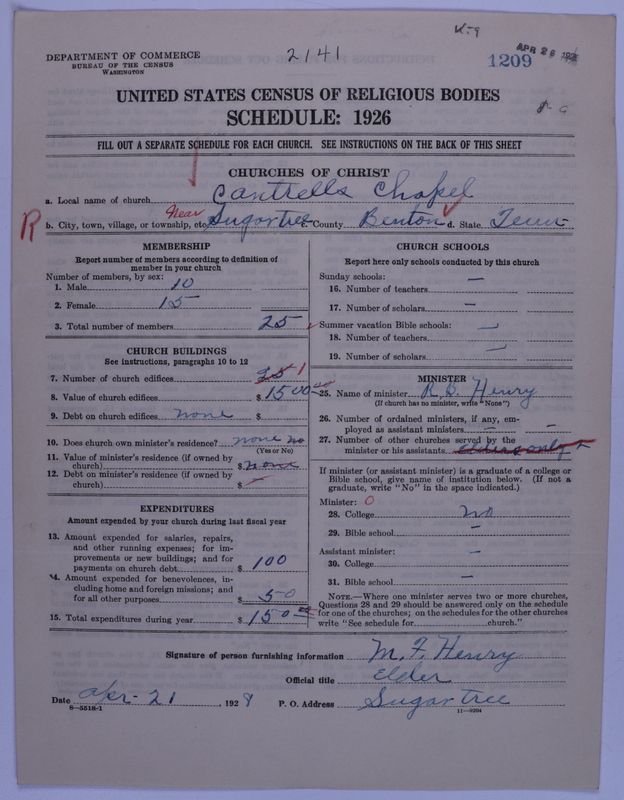 K-9
2141
APR 26
1209
DEPARTMENT OF COMMERCE
BUREAU OF THE CENSUS
WASHINGTON
UNITED STATES CENSUS OF RELIGIOUS BODIES
SCHEDULE: 1926
FILL OUT A SEPARATE SCHEDULE FOR EACH CHURCH. SEE INSTRUCTIONS ON THE BACK OF THIS SHEET
CHURCHES OF CHRIST
a. Local name of church Cantrells Chapel
R b. City, town, village, or township, etc. Near Sugartree c. County Benton d. State Tenn
MEMBERSHIP
Report number of members according to definition of
member in your church
Number of members, by sex:
1. Male 10
2. Female 15
3. Total number of members 25
CHURCH BUILDINGS
See instructions, paragraphs 10 to 12
7. Number of church edifices 25 1
8. Value of church edifices $ 1500
9. Debt on church edifices none $
10. Does church own minister's residence? none no
(Yes or No)
11. Value of minister's residence (if owned by
church) $ none
12. Debt on minister's residence (if owned by
church) $ –
EXPENDITURES
Amount expended by your church during last fiscal year
13. Amount expended for salaries, repairs,
and other running expenses; for im-
provements or new buildings; and for
payments on church debt $ 100
14. Amount expended for benevolences, in-
cluding home and foreign missions; and
for all other purposes $ 50
15. Total expenditures during year $ 150
CHURCH SCHOOLS
Report here only schools conducted by this church
Sunday schools: –
16. Number of teachers
17. Number of scholars –
Summer vacation Bible schools: –
18. Number of teachers
19. Number of scholars –
MINISTER
25. Name of minister Henry
(If church has no minister, write "None")
26. Number of ordained ministers, if any, em-
ployed as assistant ministers – –
27. Number of other churches served by the
minister or his assistants elders only
If minister (or assistant minister) is a graduate of a college or
Bible school, give name of institution below. (If not a
graduate, write "No" in the space indicated.)
Minister: 0
28. College no
29. Bible school –
Assistant minister: –
30. College
31. Bible school –
NOTE.—Where one minister serves two or more churches,
Questions 28 and 29 should be answered only on the schedule
for one of the churches; on the schedules for the other churches
write "See schedule for church."
Signature of person furnishing information M. F. Henry
Official title Elder
Date Apr- 21, 1928 P. O. Address Sugar tree
8-5518-1
11-9204